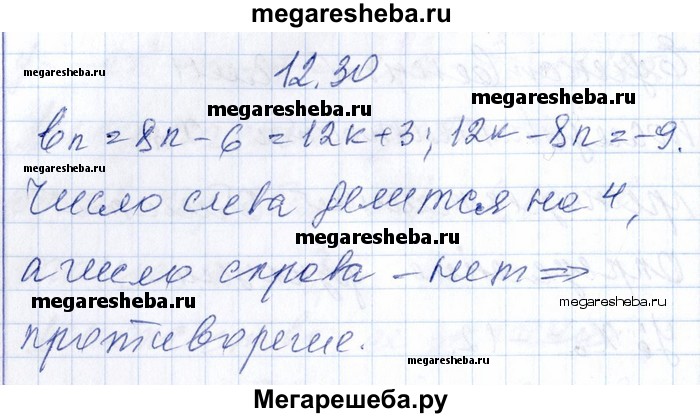 megaresheba.ru
12.30
megaresheba.ru
megaresheba.ru
megaresheba.ru
bn = 8n - 6 = 12k + 3; 12k - 8n = -9.
megaresheba.ru
Число слева делится на 4,
megaresheba.ru
а число справа - нет =>
megaresheba.ru
megaresheba.ru
противоречие.
megaresheba.ru
Мегарешеба.ру